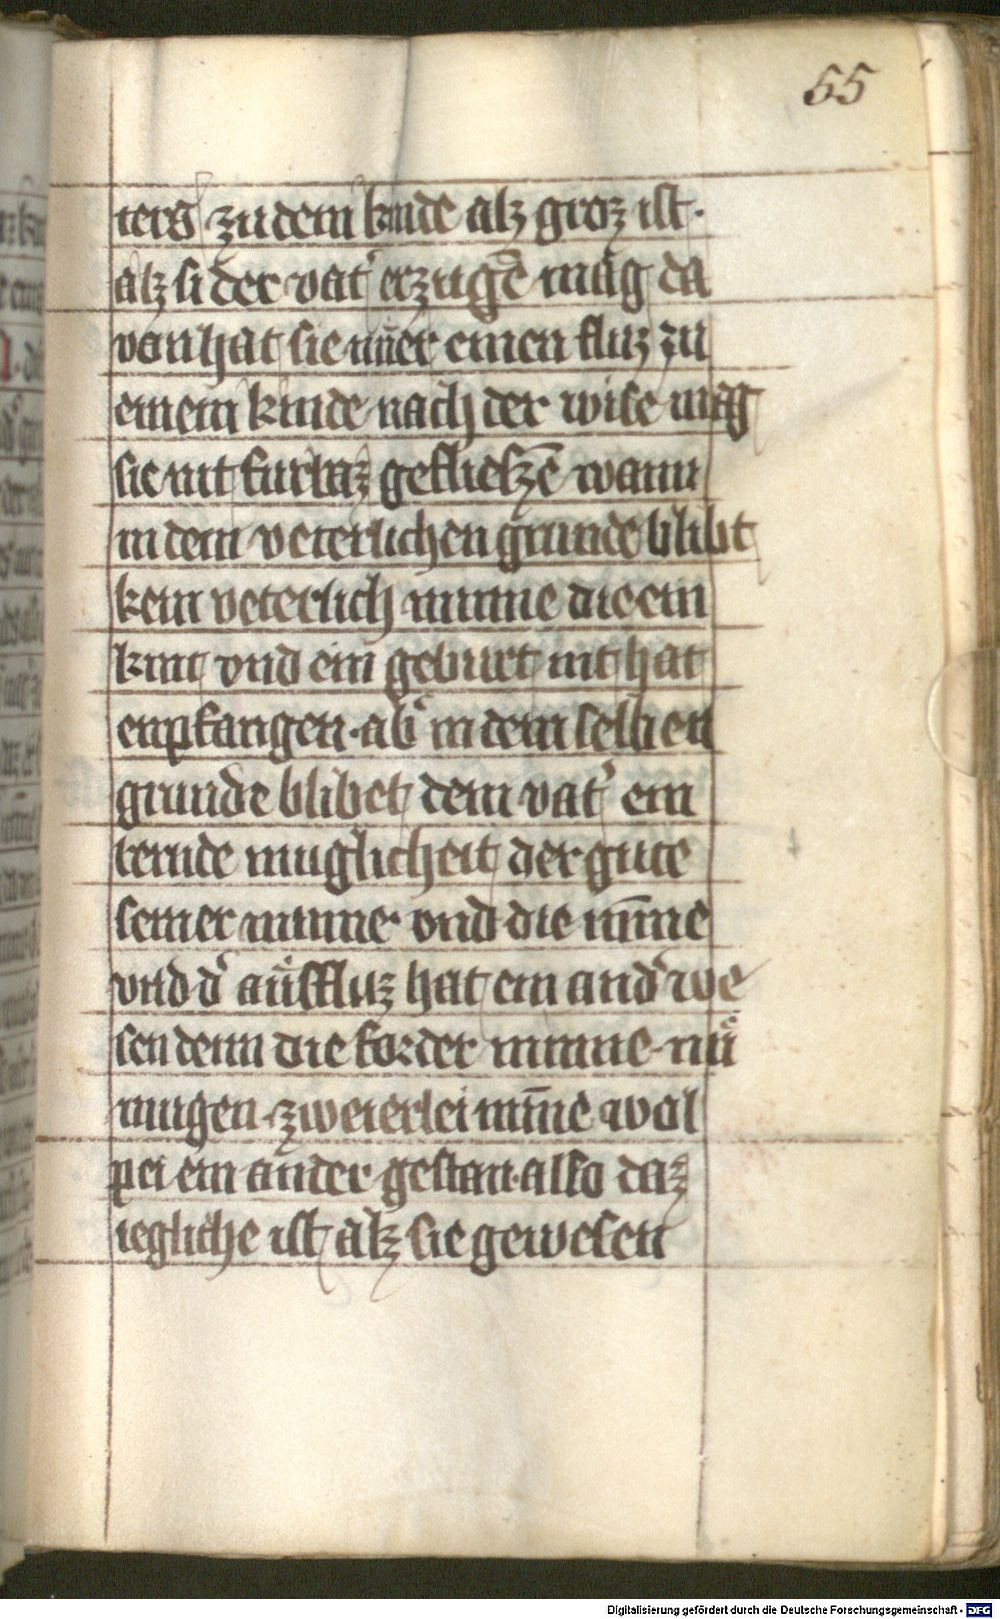 55
ters zu dem kinde alz groz ist·
alz si der vat' erzugē mag da
von hat sie nuͤer einen fluz zu
einem kinde nach der wise mag
sie nit furbaz gefliefzē wann
in dem veterlichen grunde blibt
kein veterlich minne die ein
kint vnd ein geburt nit hat
enpfangen· ab' in dem selben
grunde blibet dem vat' ein
bernde muglicheit der gute
seiner minne· vnd die mīne
vnd d' auͤsfluz hat ein and' we
sen denn die forder minne· nuͤ
mugen zweierlei mīne wol
pei ein ander gestan· also daz
iegliche ist alz sie gewesen
Digitalisierung gefördert durch die Deutsche Forschungsgemeinschaft - DFG